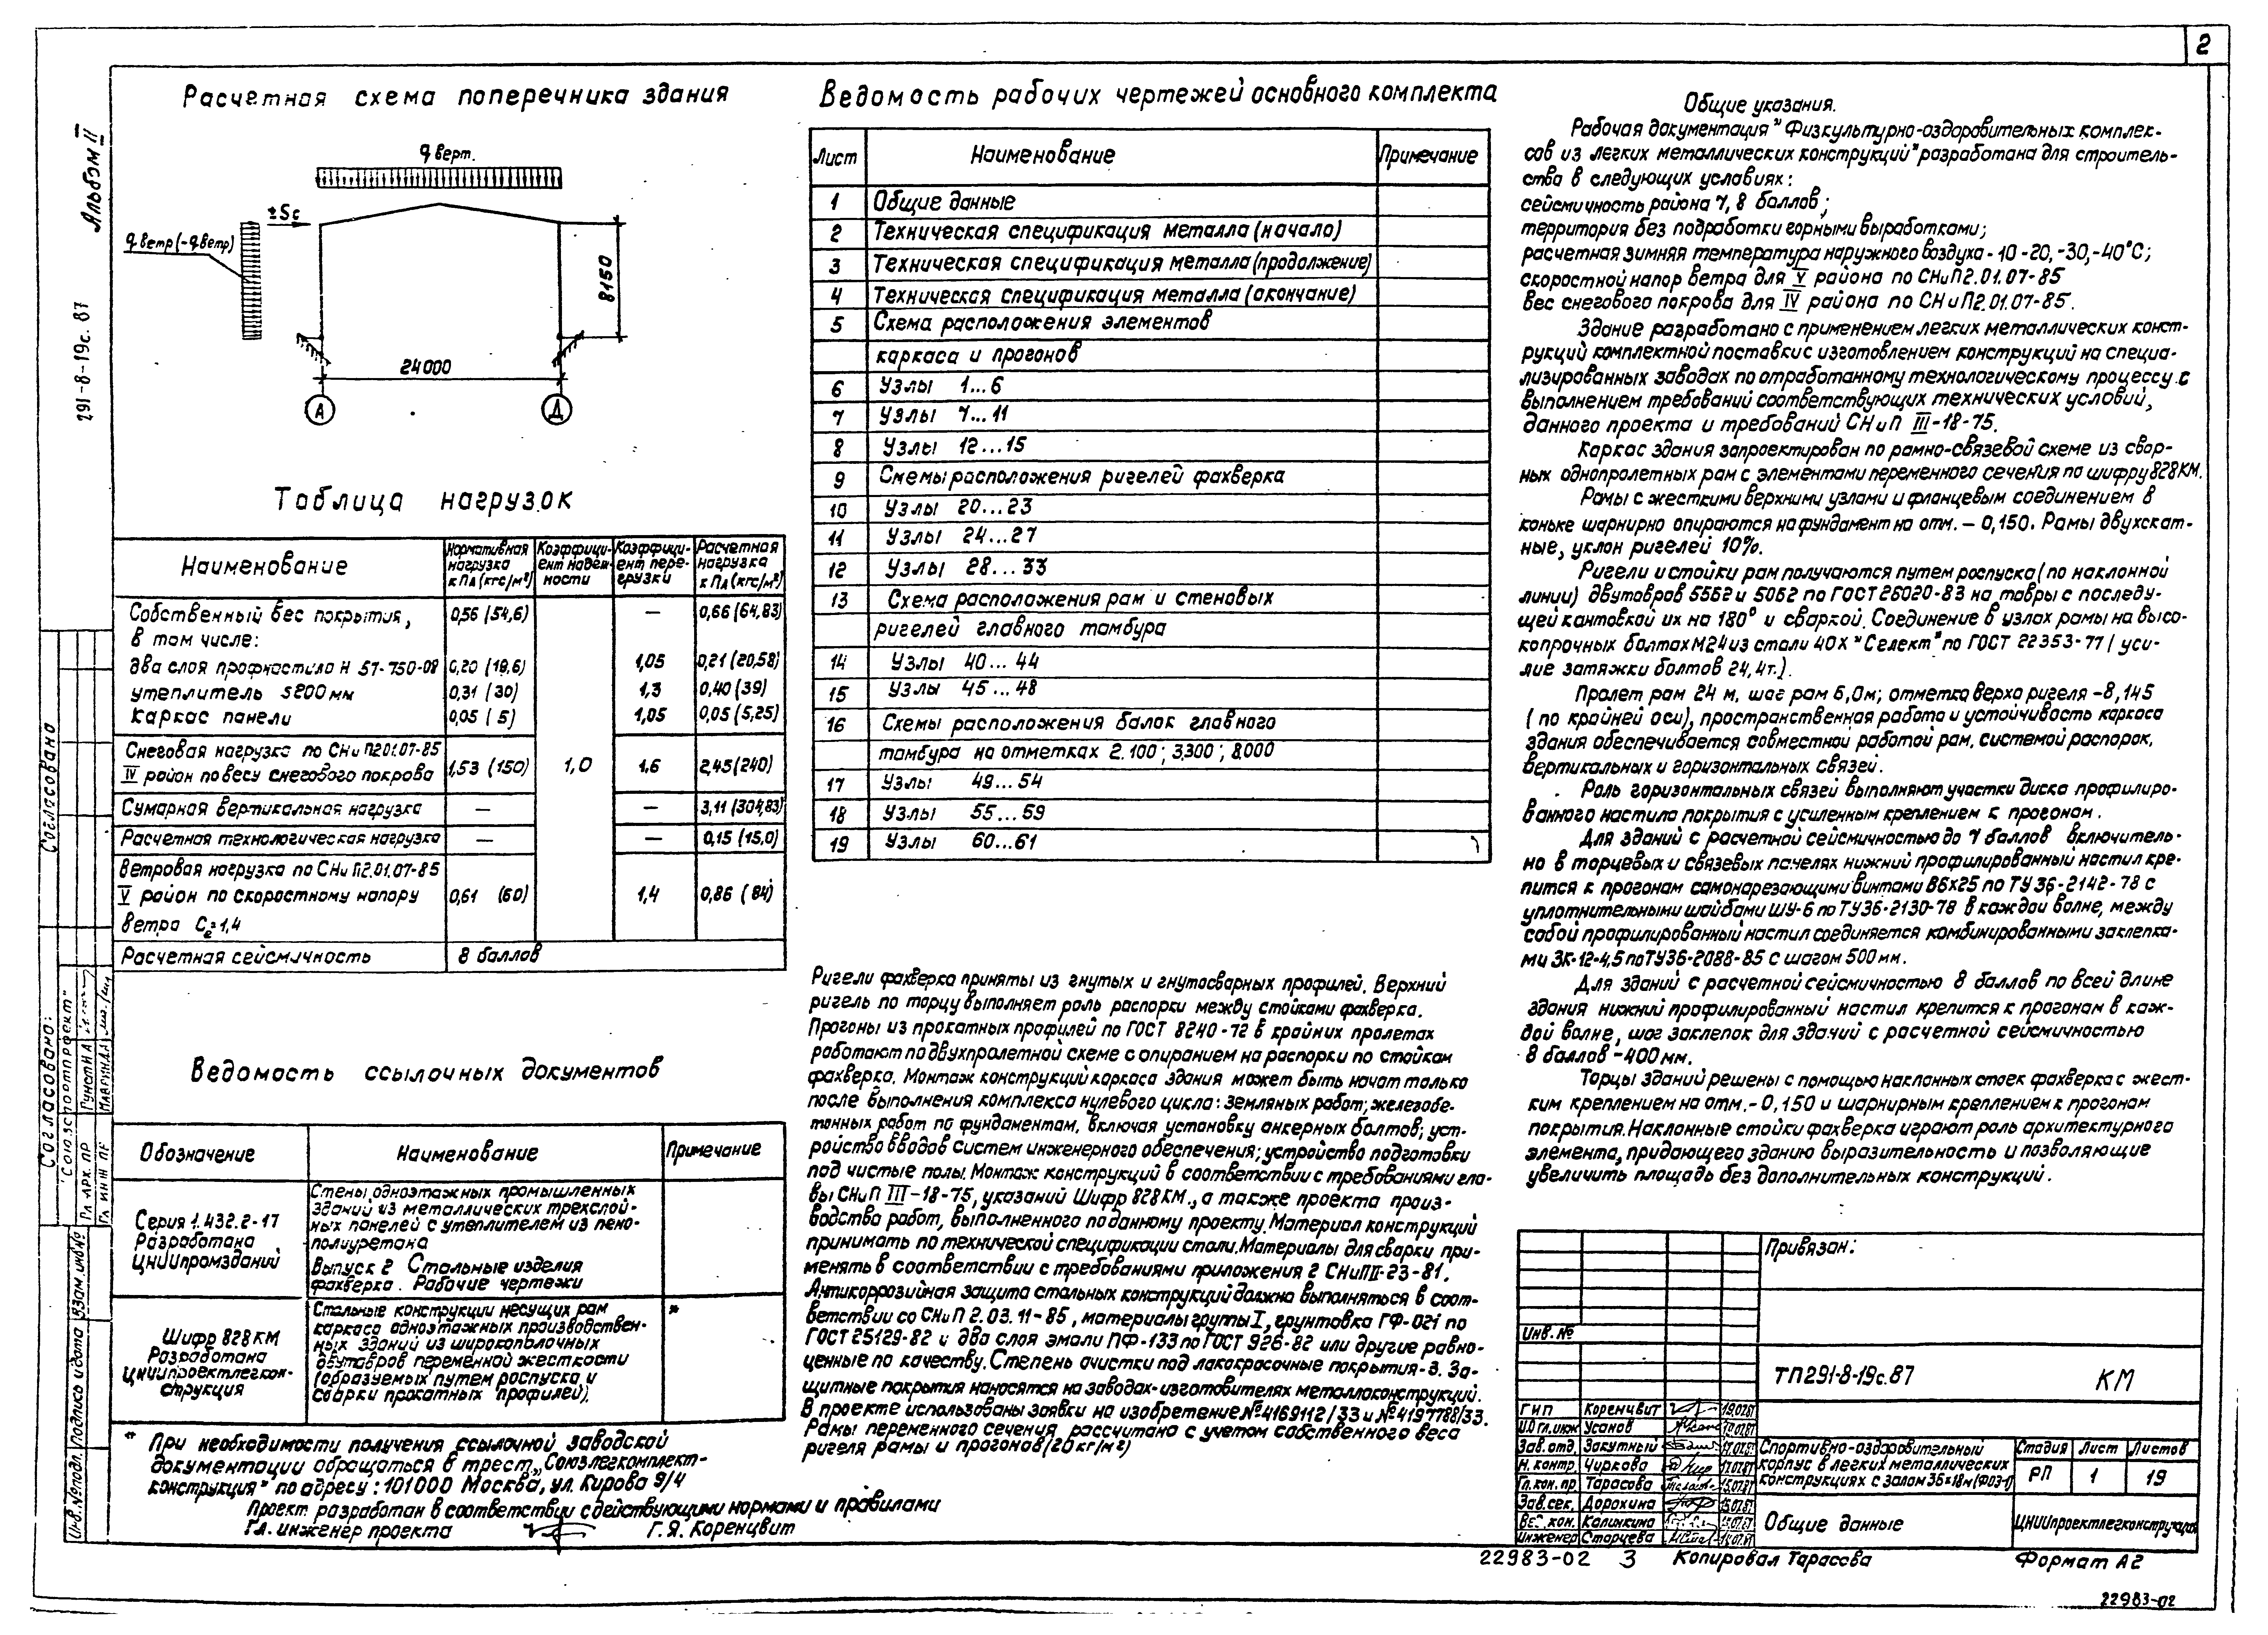 2
Альбом II
291-8-19с.87
Расчетная схема поперечника здания
q верт.
±Sc
q ветр (-q ветр)
8150
24000
А
Д
Таблица нагрузок
Наименование
Нормативная нагрузка кПа (кгс/м²)
Коэффициент надежности
Коэффициент перегрузки
Расчетная нагрузка кПа (кгс/м²)
Собственный вес покрытия, 0,56 (54,6) — 0,66 (64,83)
в том числе:
два слоя профнастила Н 57-750-08 0,20 (19,6) 1,05 0,21 (20,58)
утеплитель s200мм 0,31 (30) 1,3 0,40 (39)
каркас панели 0,05 (5) 1,05 0,05 (5,25)
Снеговая нагрузка по СНиП2.01.07-85
IV район по весу снегового покрова 1,53 (150) 1,0 1.6 2,45 (240)
Сумарная вертикальная нагрузка — — 3,11 (304,83)
Расчетная технологическая нагрузка — — 0,15 (15,0)
Ветровая нагрузка по СНиП2.01.07-85
V район по скоростному напору 0,61 (60) 1,4 0,86 (84)
ветра Се=1,4
Расчетная сейсмичность 8 баллов
Ведомость ссылочных документов
Обозначение Наименование Примечание
Серия 1.432.2-17
Разработана
ЦНИИпромзданий
Стены одноэтажных промышленных
зданий из металлических трехслой-
ных панелей с утеплителем из пено-
полиуретана
Выпуск 2 Стальные изделия
фахверка. Рабочие чертежи
Шифр 828КМ
Разработана
ЦНИИпроектлегкон-
струкция
Стальные конструкции несущих рам
каркаса одноэтажных производствен-
ных зданий из широкополочных
двутавров переменной жесткости
(образуемых путем роспуска и
сварки прокатных профилей).
*
* При необходимости получения ссылочной заводской
документации обращаться в трест „Союзлегкомплект-
конструкция" по адресу: 101000 Москва, ул. Кирова 9/4
Проект разработан в соответствии с действующими нормами и правилами
Гл. инженер проекта Г.Я. Коренцвит
Ведомость рабочих чертежей основного комплекта
Лист Наименование Примечание
1 Общие данные
2 Техническая спецификация металла (начало)
3 Техническая спецификация металла (продолжение)
4 Техническая спецификация металла (окончание)
5 Схема расположения элементов
каркаса и прогонов
6 Узлы 1...6
7 Узлы 7...11
8 Узлы 12...15
9 Схемы расположения ригелей фахверка
10 Узлы 20...23
11 Узлы 24...27
12 Узлы 28...33
13 Схема расположения рам и стеновых
ригелей главного тамбура
14 Узлы 40...44
15 Узлы 45...48
16 Схемы расположения балок главного
тамбура на отметках 2.100; 3.300; 8.000
17 Узлы 49...54
18 Узлы 55...59
19 Узлы 60...61
Ригели фахверка приняты из гнутых и гнутосварных профилей. Верхний
ригель по торцу выполняет роль распорки между стойками фахверка.
Прогоны из прокатных профилей по ГОСТ 8240-72 в крайних пролетах
работают по двухпролетной схеме с опиранием на распорки по стойкам
фахверка. Монтаж конструкций каркаса здания может быть начат только
после выполнения комплекса нулевого цикла: земляных работ; железобе-
тонных работ по фундаментам, включая установку анкерных болтов; уст-
ройство вводов систем инженерного обеспечения; устройство подготовки
под чистые полы. Монтаж конструкций в соответствии с требованиями гла-
вы СНиП III-18-75, указаний Шифр 828КМ., а также проекта произ-
водства работ, выполненного по данному проекту. Материал конструкций
принимать по технической спецификации стали. Материалы для сварки при-
менять в соответствии с требованиями приложения 2 СНиП II-23-81.
Антикоррозийная защита стальных конструкций должна выполняться в соот-
ветствии со СНиП 2.03.11-85, материалы группы I, грунтовка ГФ-021 по
ГОСТ 25129-82 и два слоя эмали ПФ-133 по ГОСТ 926-82 или другие равно-
ценные по качеству. Степень очистки под лакокрасочные покрытия-3. За-
щитные покрытия наносятся на заводах-изготовителях металлоконструкций.
В проекте использованы заявки на изобретение №4169112/33 и №4197788/33.
Рамы переменного сечения рассчитана с учетом собственного веса
ригеля рамы и прогонов (20 кг/м²)
Общие указания.
Рабочая документация "Физкультурно-оздоровительных комплек-
сов из легких металлических конструкций" разработана для строитель-
ства в следующих условиях:
сейсмичность района 7, 8 баллов;
территория без подработки горными выработками;
расчетная зимняя температура наружного воздуха -10 -20, -30, -40°С;
скоростной напор ветра для V района по СНиП2.01.07-85
вес снегового покрова для IV района по СНиП2.01.07-85.
Здание разработано с применением легких металлических конст-
рукций комплектной поставки с изготовлением конструкций на специа-
лизированных заводах по отработанному технологическому процессу с
выполнением требований соответствующих технических условий,
данного проекта и требований СНиП III-18-75.
Каркас здания запроектирован по рамно-связевой схеме из свар-
ных однопролетных рам с элементами переменного сечения по шифру 828КМ.
Рамы с жесткими верхними узлами и фланцевым соединением в
коньке шарнирно опираются на фундамент на отм. - 0,150. Рамы двухскат-
ные, уклон ригелей 10%.
Ригели и стойки рам получаются путем роспуска (по наклонной
линии) двутавров 55Б2 и 50Б2 по ГОСТ 26020-83 на тавры с последу-
щей кантовкой их на 180° и сваркой. Соединение в узлах рамы на высо-
копрочных болтах М24 из стали 40Х "Селект" по ГОСТ 22353-77 (уси-
лие затяжки болтов 24,4т.).
Пролет рам 24 м. шаг рам 6,0м; отметка верха ригеля -8,145
(по крайней оси), пространственная работа и устойчивость каркаса
здания обеспечивается совместной работой рам, системой распорок,
вертикальных и горизонтальных связей.
Роль горизонтальных связей выполняют участки диска профилиро-
ванного настила покрытия с усиленным креплением к прогонам.
Для зданий с расчетной сейсмичностью до 7 баллов включитель-
но в торцевых и связевых панелях нижний профилированный настил кре-
пится к прогонам самонарезающими винтами В6х25 по ТУ 36-2142-78 с
уплотнительными шайбами ШУ-6 по ТУ36-2130-78 в каждой волне, между
собой профилированный настил соединяется комбинированными заклепка-
ми ЗК-12-4,5 по ТУ36-2088-85 с шагом 500мм.
Для зданий с расчетной сейсмичностью 8 баллов по всей длине
здания нижний профилированный настил крепится к прогонам в каж-
дой волне, шаг заклепок для зданий с расчетной сейсмичностью
8 баллов-400мм.
Торцы зданий решены с помощью наклонных стоек фахверка с жест-
ким креплением на отм.-0,150 и шарнирным креплением к прогонам
покрытия. Наклонные стойки фахверка играют роль архитектурного
элемента, придающего зданию выразительность и позволяющие
увеличить площадь без дополнительных конструкций.
Привязан:
Инв.№
ТП291-8-19с.87 КМ
ГИП Коренцвит
И.О гл.инж Усанов
Зав.отд. Закутный
Н.контр. Чиркова
Гл.кон.пр. Тарасова
Зав.сек. Дорохина
Вед.кон. Калинкина
Инженер Сторчева
Спортивно-оздоровительный
корпус в легких металлических
конструкциях с залом 36х18м (ФОЗ-1)
Стадия Лист Листов
РП 1 19
Общие данные
ЦНИИпроектлегконструкция
22983-02 3 Копировал Тарасова Формат А2
22983-02
Согласовано
Согласовано:
"Союзспортпроект"
Гл. арх. пр
Гл инж пр
Взам.инв№
Подпись и дата
Инв.№подл.